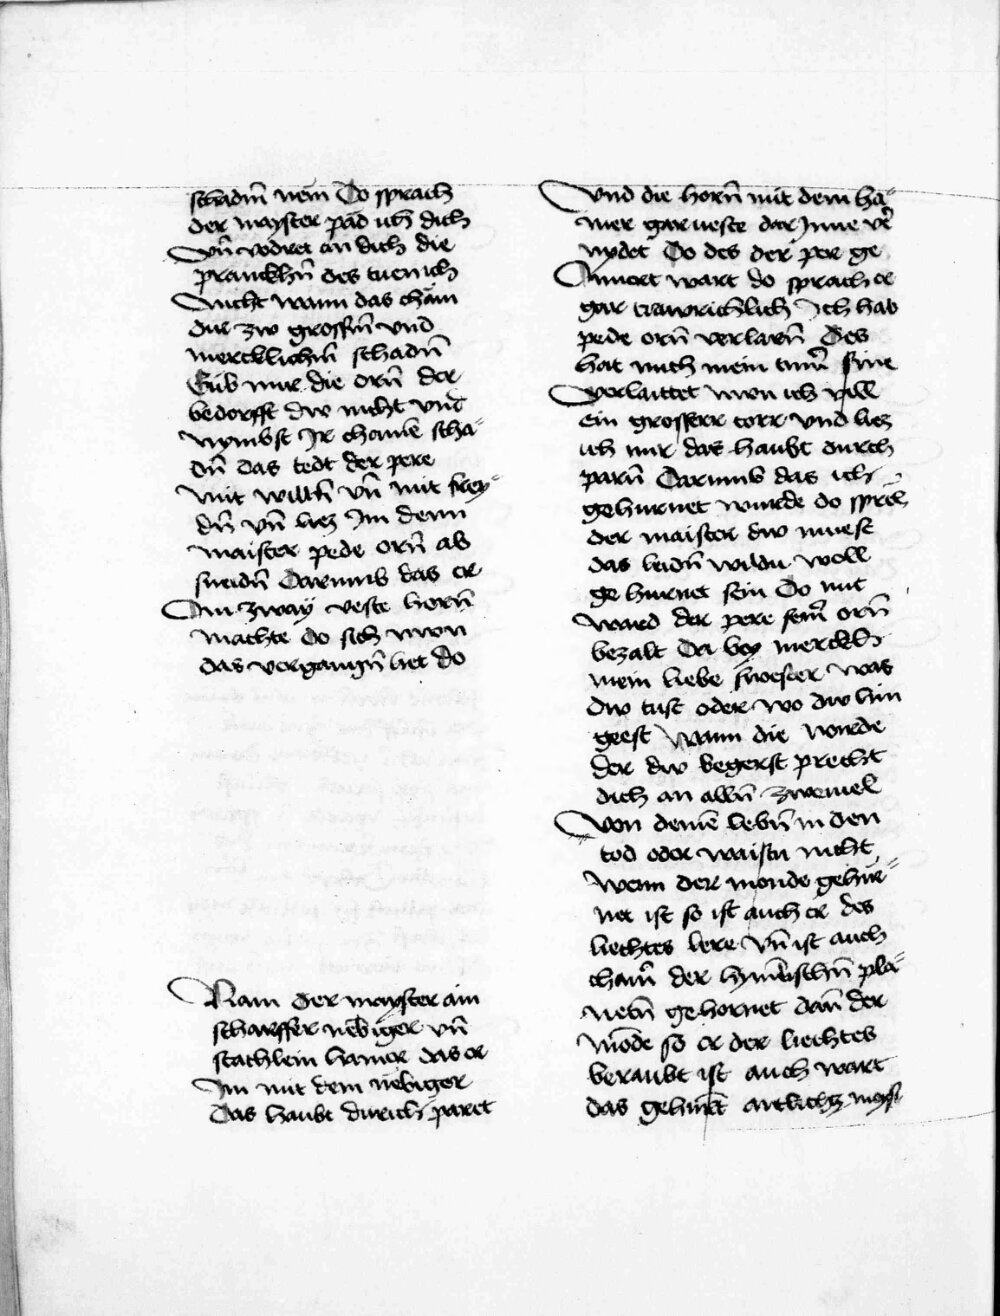 schadn̄ nem Do sprach
der mayster pad ich dich
Vn̄ vodret an dich die
pranckhn̄ des tuen ich
Nicht wann das chäm
dir zw grossn̄ vnd
mercklichn̄ schadn̄
Gib mir die orn̄ der
bedorfft dw nicht vnd
nymbst Ir chainē scha-
dn̄ das tedt der pere
Mit willn̄ vn̄ mit frey-
dn̄ vn̄ liez Im denn
maister pede orn̄ ab
sneidn̄ Darumb das er
Im zway veste horn̄
machte Do sich nvon
das vergangn̄ het do
Nam der mayster ain
scharffer nebiger vn̄
stachlein hamer das er
Im mit dem nebiger
Das haubt durich paret
Vnd die horn̄ mit dem ha-
mer gar veste dar Inne v̄er
nydet Do des der per ge
Innert wart do sprach er
gar trawrichlich Ich hab
pede orn̄ verlarn̄ Des
hat mich mein tum̄ sine
verlaittet nvon ich vill
ein grosserr torr vnd liez
ich mir das haubt durch
parn̄ Darumb das ich
gehurnet wurde do sprach
der maister dw muest
das leidn̄ wildu woll
ge hurnet sein Do mit
ward der pere sein̄ orn̄
bezalt Da bey merckh
mein liebe swester was
dw tust oder wo dw hin
geest Wann die worde
der dw begerst precht
dich an alln̄ zweiuel
Von deinē lebn̄ in den
tod oder waistu nicht
Wenn der monde gehur-
net ist so ist auch er des
liechtes lere Vn̄ ist auch
chain̄ der hymlischn̄ pla-
netn̄ gehornet dan̄ der
Mōde so er der liechtes
beraubt ist auch wart
das gehürēt artlichz mays